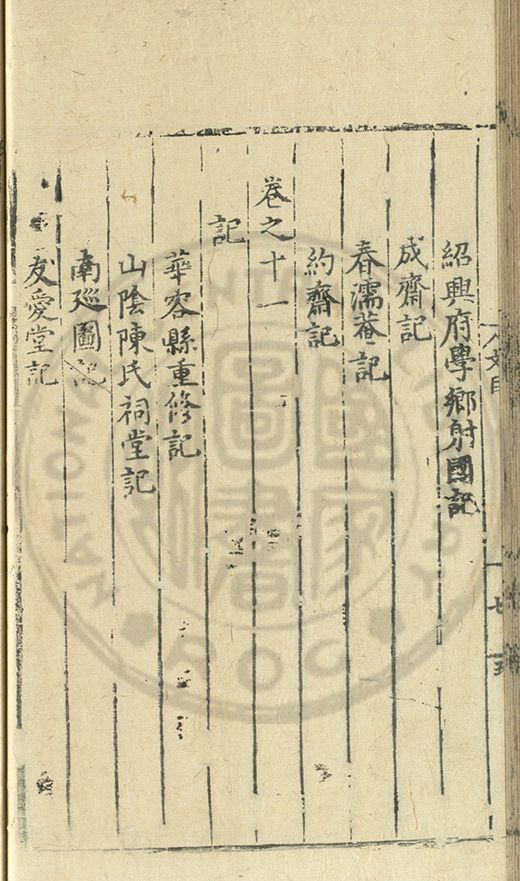 紹興府學鄉射圃記
成齋記
春濡菴記
約齋記
卷之十一
記
華容縣重修記
山陰陳氏祠堂記
南巡圖記
友愛堂記